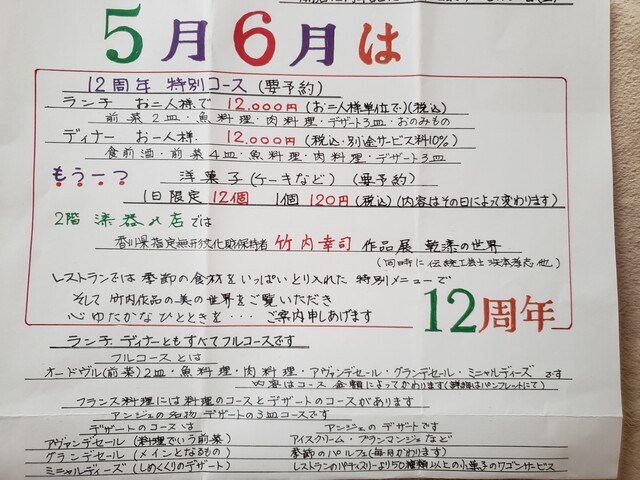 5月6月は
12周年 特別コース (要予約)
ランチ お二人様で 12.000円 (お二人様単位で)(税込)
前菜2皿・魚料理・肉料理・デザート3皿・おのみもの
ディナー お一人様. 12.000円 (税込・別途サービス料10%)
食前酒・前菜4皿・魚料理・肉料理・デザート3皿
もう一つ 洋菓子(ケーキなど) (要予約)
1日限定 12個 1個 120円(税込)(内容はその日によって変わります)
2階 漆器の店では
香川県指定無形文化財保持者 竹内幸司 作品展 乾漆の世界
(同時に 伝統工芸士 他)
レストランでは 季節の食材をいっぱいとり入れた 特別メニューで
そして 竹内作品の美の世界をご覧いただき
心ゆたかなひとときを・・・ ご案内申しあげます
12周年
ランチ ディナーともすべてフルコースです
フルコースとは
オードヴル(前菜)2皿・魚料理・肉料理・アヴァンデセール・グランデセール・ミニャルディーズ です
内容はコース 金額によってかわります(詳細はパンフレットにて)
フランス料理には料理のコースとデザートのコースがあります
アンジェの名物 デザートの3皿コースです
デザートのコースは アンジェのデザートです
アヴァンデセール (料理でいう前菜) アイスクリーム・ブランマンジェなど
グランデセール (メインとなるもの) 季節のパルフェ(毎月かわります)
ミニャルディーズ (しめくくりのデザート) レストランのパティスリーより50種類以上の小菓子のワゴンサービス